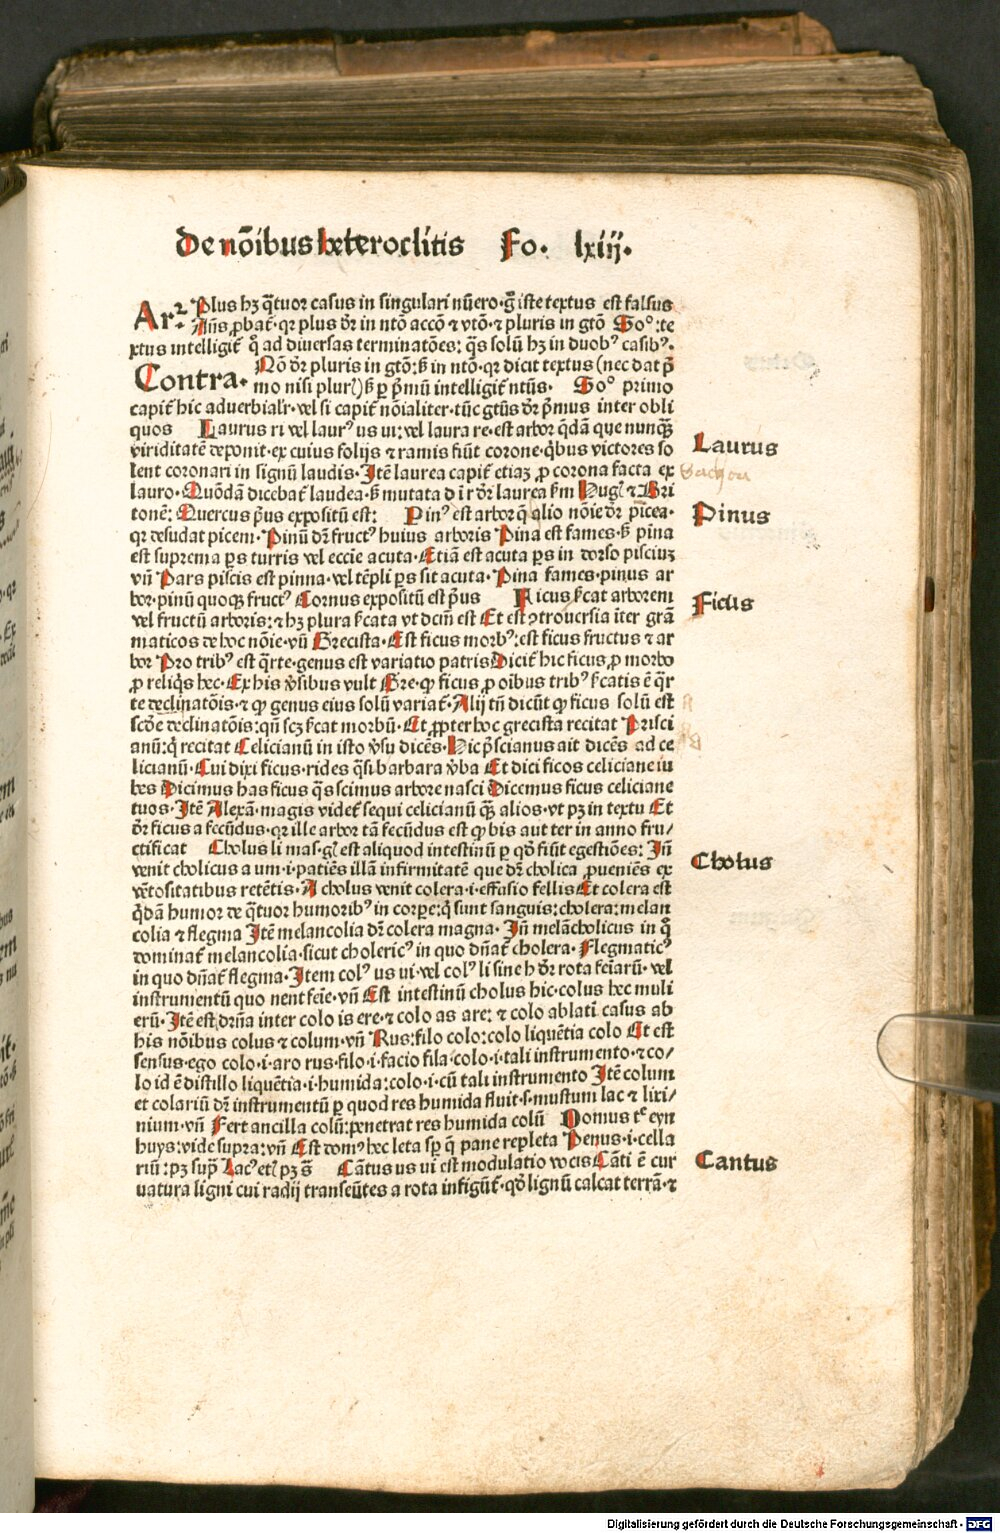 De nōibus heteroclitis Fo. lxiij.
Arꝛ. Plus hꝫ q̄tuor casus in singulari nūero·g̃ iste textus est falsus
Añs ꝓbat̃·qꝛ plus d̄r in ntō accō ⁊ vtō·⁊ pluris in gtō So°:te
xtus intelligit̃ ꝙ ad diuersas terminatōes: q̄s solū hꝫ in duobꝰ casibꝰ.
Contra. Nō d̄r pluris in gtō:ß in ntō·qꝛ dicit textus (nec dat p̄
mo nisi plurꝭ) ß ꝑ p̄mū intelligit̃ ntūs· So° primo
capit̃ hic aduerbialꝛ·vel si capit̃ nōialiter·tūc gtūs d̄r p̄mus inter obli
quos Laurus ri vel laurꝰ us ui:vel laura re·est arbor q̄dā que nunqꝫ̄
viriditatē deponit·ex cuius folijs ⁊ ramis fiūt corone·q̇bus victores so
lent coronari in signū laudis·Itē laurea capit̃ etiaꝫ ꝓ corona facta ex
lauro·Quōdā dicebat̃ laudea·ß mutata d ī r d̄r laurea ẜm Hugꝭ ⁊ Bri
tonē: Quercus p̄us expositū est: Pinꝰ est arbor q̄ alio nōie d̄r picea·
qꝛ desudat picem·Pinū dr̄ fructꝰ huius arboris Pina est fames·ß pina
est suprema ꝑs turris vel eccīe acuta·Etiā est acuta ꝑs in dorso pisciuꝫ
vn̄ Pars piscis est pinna·vel tēpli ꝑs sit acuta·Pina fames·pinus ar
bor·pinū quoqꝫ fructꝰ Cornus expositū est p̄us Ficus ẜcat arborem
vel fructū arboris:⁊ hꝫ plura ẜcata vt dcm̄ est Et est ꝯtrouersia īter grā
maticos de hoc nōie·vn̄ Grecista·Est ficus morbꝰ:est ficus fructus ⁊ ar
bor Pro tribꝰ est q̄rte·genus est variatio patris Dicit̃ hic ficus ꝓ morbo
ꝓ reliq̇s hec·Ex his v̄sibus vult Gre·ꝙ ficus ꝓ oībus tribꝰ ẜcatis ē q̄r
te declinatōis·⁊ ꝙ genus eius solū variat̃·Alij tn̄ dicūt ꝙ ficus solū est
scd̄e declinatōis:qn̄ scꝫ ẜcat morbū·Et ꝓpter hoc grecista recitat Prisci
anū:q̇ recitat Celicianū in isto v̄su dicēs·Hic p̄scianus ait dicēs ad ce
licianū·Cui dixi ficus·rides q̄si barbara v̄ba Et dici ficos celiciane iu
bes Dicimus has ficus q̄s scimus arbore nasci Dicemus ficus celiciane
tuos·Itē Alexā·magis videt̃ sequi celicianū qꝫ̄ alios·vt pꝫ in textu Et
d̄r ficus a fecūdus·qꝛ ille arbor tā fecūdus est ꝙ bis aut ter in anno fru/
ctificat Cholus li mas·gꝭ est aliquod intestinū ꝑ qd̄ fiūt egestiōes: Jn̄
venit cholicus a um·i·patiēs illā infirmitatē que dr̄ cholica ꝓueniēs ex
vētositatibus retētis·A cholus venit colera·i·effusio fellis Et colera est
q̇dā humor de q̄tuor humoribꝰ in corꝑe:q̇ sunt sanguis:cholera:melan
colia ⁊ flegma Itē melancolia dr̄ colera magna·Jn̄ melācholicus in q̄
dominat̃ melancolia·sicut cholericꝰ in quo dn̄at̃ cholera·Flegmaticꝰ
in quo dn̄at̃ flegma·Item colꝰ us ui·vel colꝰ li sine h d̄r rota feīarū·vel
instrumentū quo nent feīe·vn̄ Est intestinū cholus hic·colus hec muli
erū·Itē est drn̄a inter colo is ere·⁊ colo as are: ⁊ colo ablati casus ab
his nōibus colus ⁊ colum·vn̄ Rus:filo colo:colo liquētia colo Et est
sensus·ego colo·i·aro rus·filo·i·facio fila·colo·i·tali instrumento·⁊ co/
lo id ē distillo liquētia·i·humida:colo·i·cū tali instrumento Itē colum
et colariū dr̄ instrumentū ꝑ quod res humida fluit·s·mustum lac ⁊ lixi/
nium·vn̄ Fert ancilla colū:penetrat res humida colū Domus tͤ eyn
huys:vide supra:vn̄ Est domꝰ hec leta sꝑ q̄ pane repleta Penus·i·cella
riū:pꝫ supͣ Lacꝰ etꝭ pꝫ s̄ Cātus us ui est modulatio vocis Cāti ē cur
uatura ligni cui radij transeūtes a rota infigūt̃·qd̄ lignū calcat terrā·⁊
Laurus
Pinus
Ficus
Cholus
Cantus
Digitalisierung gefördert durch die Deutsche Forschungsgemeinschaft - DFG